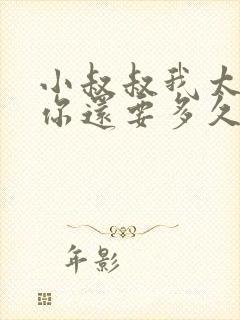 小叔叔我太
你還要多久
年影